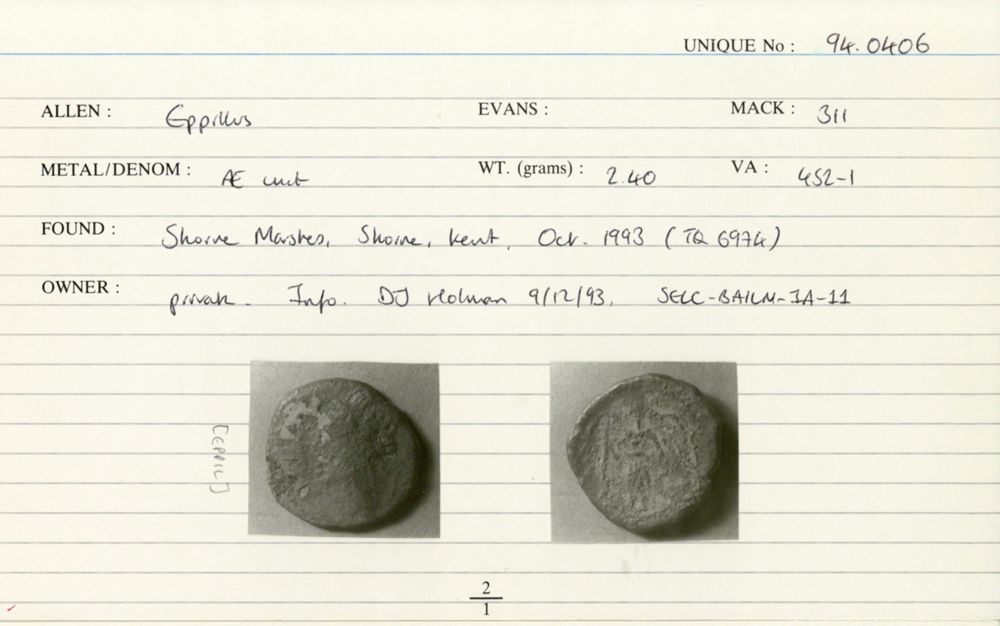 UNIQUE No : 94.0406
ALLEN : Eppillus EVANS : MACK : 311
METAL/DENOM : Æ unit WT. (grams) : 2.40 VA : 452-1
FOUND : Shorne Marshes, Shorne, Kent, Oct. 1993 (TQ 6974)
OWNER : private. Info. DJ Holman 9/12/93. SELC-BAILM-IA-11
[EPPIL]
2
1